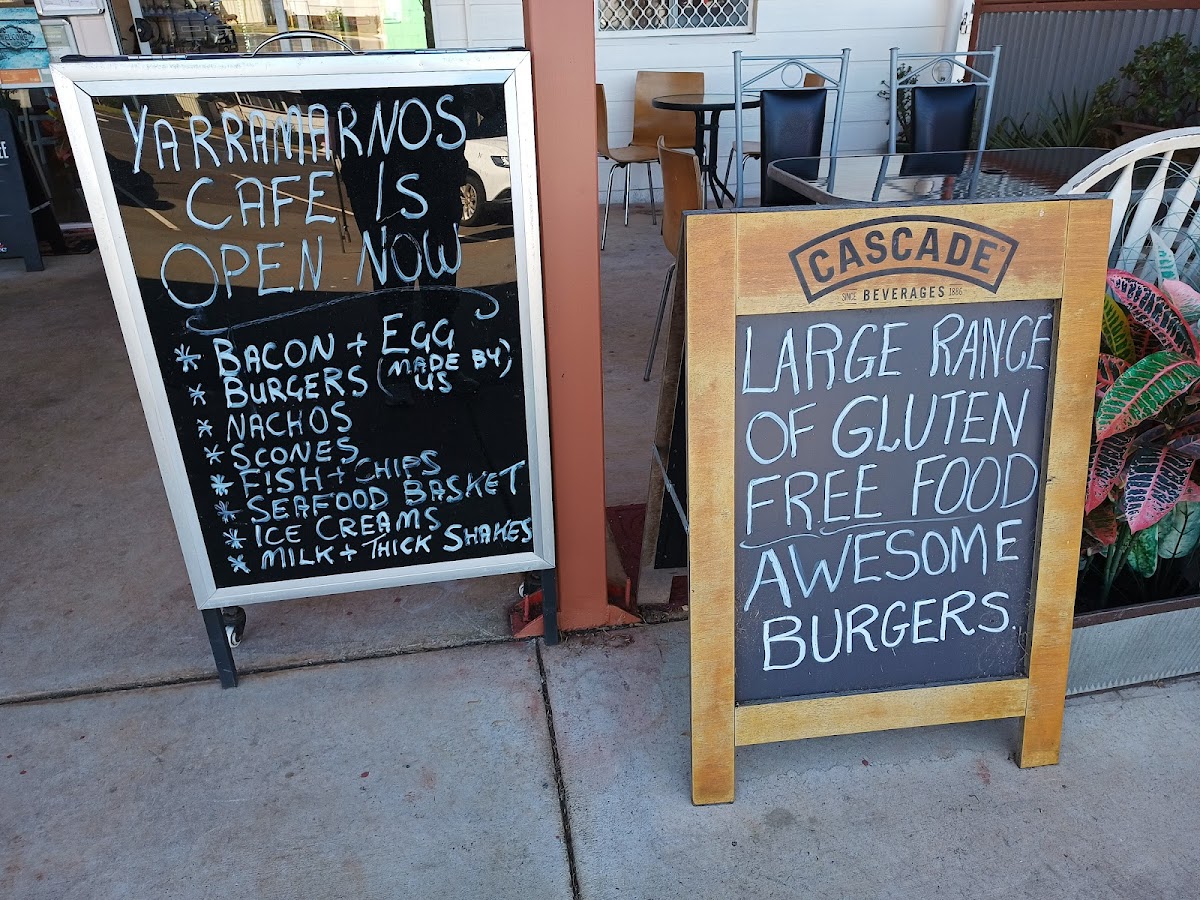 YARRAMARNOS
CAFE IS
OPEN NOW
* BACON + EGG
* BURGERS (MADE BY US)
* NACHOS
* SCONES
* F!SH + CHIPS
* SEAFOOD BASKET
* ICE CREAMS
* MILK + THICK SHAKES
CASCADE®
SINCE BEVERAGES 1886
LARGE RANGE
OF GLUTEN
FREE FOOD
AWESOME
BURGERS.